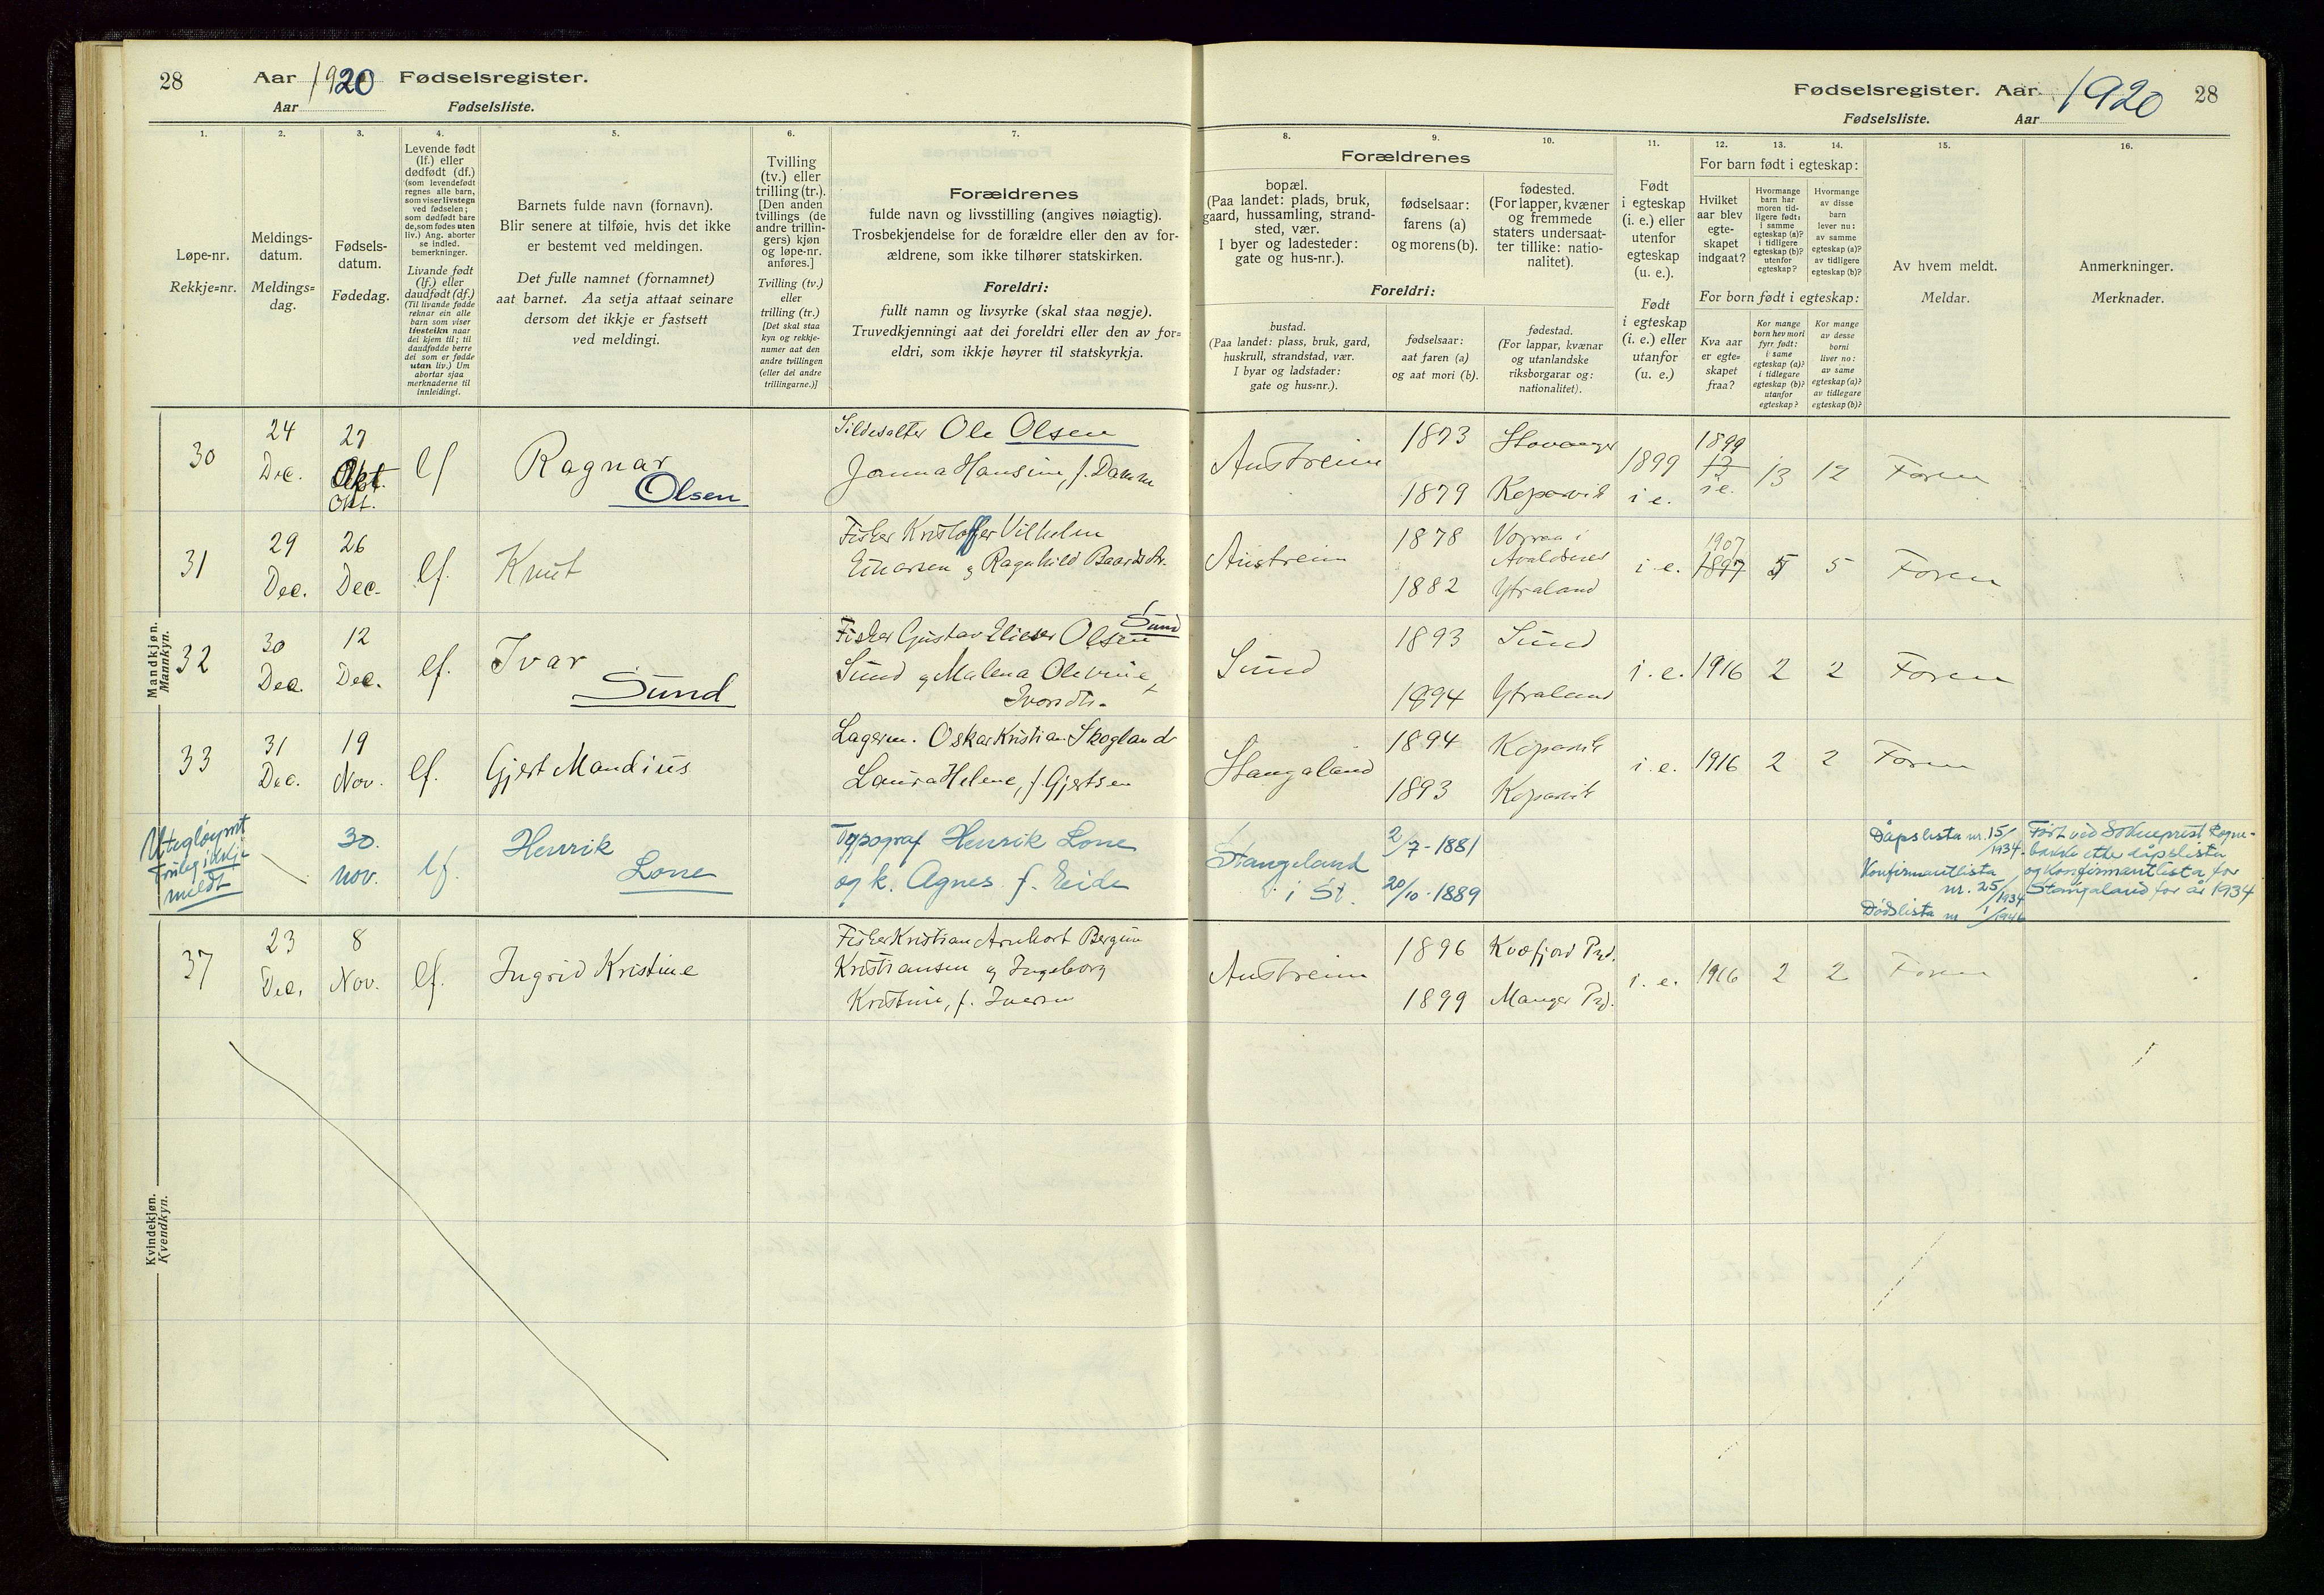 28
Aar 1920 Fødselsregister.
Aar Fødselsliste.
Fødselsregister. Aar 1920 28
Fødselsliste. Aar
1.
2.
3.
4.
5.
6.
7.
8.
9.
10.
11.
12.
13.
14.
15.
16.
Løpe-nr.
Rekkje=nr.
Meldings-
datum.
Meldings=
dag.
Fødsels-
datum.
Fødedag.
Levende født
(lf.) eller
dødfødt (df.)
(som levendefødt
regnes alle barn,
som viser livstegn
ved fødselen;
som dødfødt bare
de, som fødes uten
liv.) Ang. aborter
se indled.
bemerkninger.
Livande født
(lf.) eller
daudfødt (df.)
(Til livande fødde
reknar ein alle
barn som viser
livsteikn naar
dei kjem til; til
daudfødde berre
dei som er fødde
utan liv.) Um
abortar sjaa
merknaderne til
innleidingi.
Barnets fulde navn (fornavn).
Blir senere at tilføie, hvis det ikke
er bestemt ved meldingen.
Det fulle namnet (fornamnet)
aat barnet. Aa setja attaat seinare
dersom det ikkje er fastsett
ved meldingi.
Tvilling
(tv.) eller
trilling (tr.).
[Den anden
tvillings (de
andre trillin-
gers) kjøn
og løpe-nr.
anføres.]
Tvilling (tv.)
eller
trilling (tr.)
[Det skal staa
kyn og rekkje-
numer aat den
andre tvillingen
(eller dei andre
trillingarne.)]
Forældrenes
fulde navn og livsstilling (angives nøiagtig).
Trosbekjendelse for de forældre eller den av for-
ældrene, som ikke tilhører statskirken.
Foreldri:
fullt namn og livsyrke (skal staa nøgje).
Truvedkjenningi aat dei foreldri eller den av for=
eldri, som ikkje høyrer til statskyrkja.
Forældrenes
bopæl.
(Paa landet: plads, bruk,
gaard, hussamling, strand-
sted, vær.
I byer og ladesteder:
gate og hus-nr.).
fødselsaar:
farens (a)
og morens (b).
fødested.
(For lapper, kvæner
og fremmede
staters undersaat-
ter tillike: natio-
nalitet).
Foreldri:
bustad.
(Paa landet: plass, bruk, gard,
huskrull, strandstad, vær.
I byar og ladstader:
gate og hus=nr.).
fødselsaar:
aat faren (a)
og aat mori (b).
fødestad.
(For lappar, kvænar
og utanlandske
riksborgarar og:
nationalitet).
Født
i egteskap
(i. e.) eller
utenfor
egteskap
(u. e.).
Født
i egteskap
(i. e.) eller
utanfor
(u. e.)
For barn født i egteskap:
Hvilket
aar blev
egte-
skapet
indgaat?
Hvormange
barn har
moren tid-
ligere født:
i samme
egteskap (a)?
i tidligere
egteskap (b)?
utenfor
egteskap?
Hvormange
av disse
barn
lever nu:
av samme
egteskap (a)?
av tidligere
egteskap (b)?
For born født i egteskap:
Kva aar
er egte=
skapet
fraa?
Kor mange
born hev mori
fyrr født:
i same
egteskap (a)?
i tidlegare
egteskap (b)?
utanfor
egteskap?
Kor mange
av desse
borni
liver no:
av same
egteskap (a)?
av tidlegare
egteskap (b)?
Av hvem meldt.
Meldar.
Anmerkninger.
Merknader.
Mandkjøn.
Mannkyn.
30
24
Dec.
27
Okt.
Okt.
lf
Ragnar
Olsen
Sildesalter Ole Olsen
Janna Hansine, f. Damm
Austreim
1873
Stavanger
1879
Kopervik
1899
i e.
1899
i e.
13
12
Faren
31
29
Dec.
26
Dec.
lf.
Knut
Fisker Kristoffer Vilhelm
Einarsen g Ragnhild Baardsdtr.
Austreim
1878
i
Avaldsnes
1882
Ytraland
i e.
1907
1897
5
5
Faren
32
30
Dec.
12
Dec.
lf.
Ivar
Sund
Sund
Fisker Gustav Elieser Olsen
Sund g Malena Olevine
Ivarsdtr.
Sund
1893
Sund
1894
Ytraland
i. e.
1916
2
2
Faren
33
31
Dec.
19
Nov.
lf.
Gjert Mandius
Lagerm. Oskar Kristian Skogland
Laura Helene, f. Gjertsen
Stangaland
1894
Kopervik
1893
Kopervik
i. e.
1916
2
2
Faren
Utegløymt
Truleg ikkje
meldt
30.
nov.
lf.
Henrik
Lone
Typograf Henrik Lone
og k. Agnes f. Eide
Stangeland
i St.
2/7 - 1881
20/10 - 1889
Dåpslista nr. 15/1934.
Konfirmantlista
nr. 25/1934
Dødslista nr 1/1946
Ført ved Sokneprest Rogne-
bakke etter dåpslista
og Konfirmantlista for
Stangaland for år 1934
Kvindekjøn.
Kvendkyn.
37
23
Dec.
8
Nov.
lf.
Ingrid Kristine
Fisker Kristian Bergin
Kristiansen g Ingeborg
Kristine, f. Iversen
Austreim
1896
Kvæfjord Pgd.
1899
Manger Pgd.
i. e.
1916
2
2
Faren